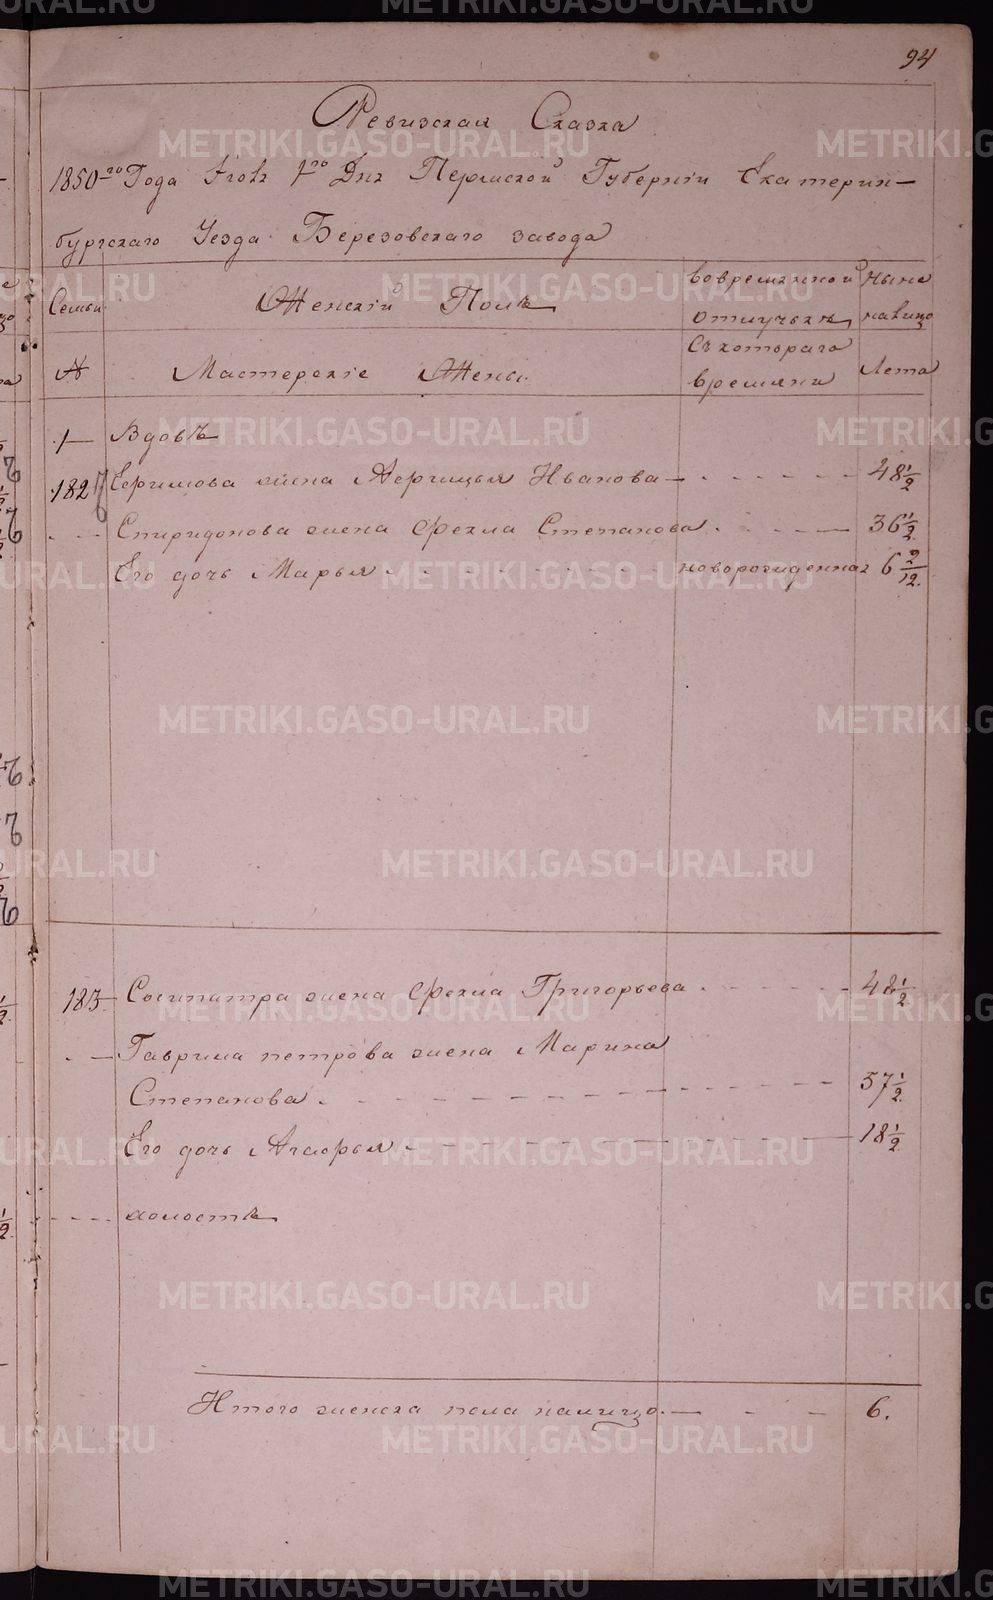 94
Ревизская Сказка
1850-го Года Iюля 1го Дня Пермской Губернiи Екатерин-
бургскаго Уезда Березовскаго завода
Семьи Женскiй Полъ вовременной отлучькѣ Ныне налицо
№ Мастерскiе Жены съ котораго времяни Лета
1 Вдовъ
182 жена Иванова 48 1/2
Спиридонова жена Фекла Степанова 36 1/2
Его дочь Марья новорожденная 6 2/12
183 Сосипатра жена Фекла Григорьева 48 1/2
Гаврила петрова жена Марина
Степанова 37 1/2
Его дочь 18 1/2
холостъ
Итого женска пола налицо 6.
METRIKI.GASO-URAL.RU